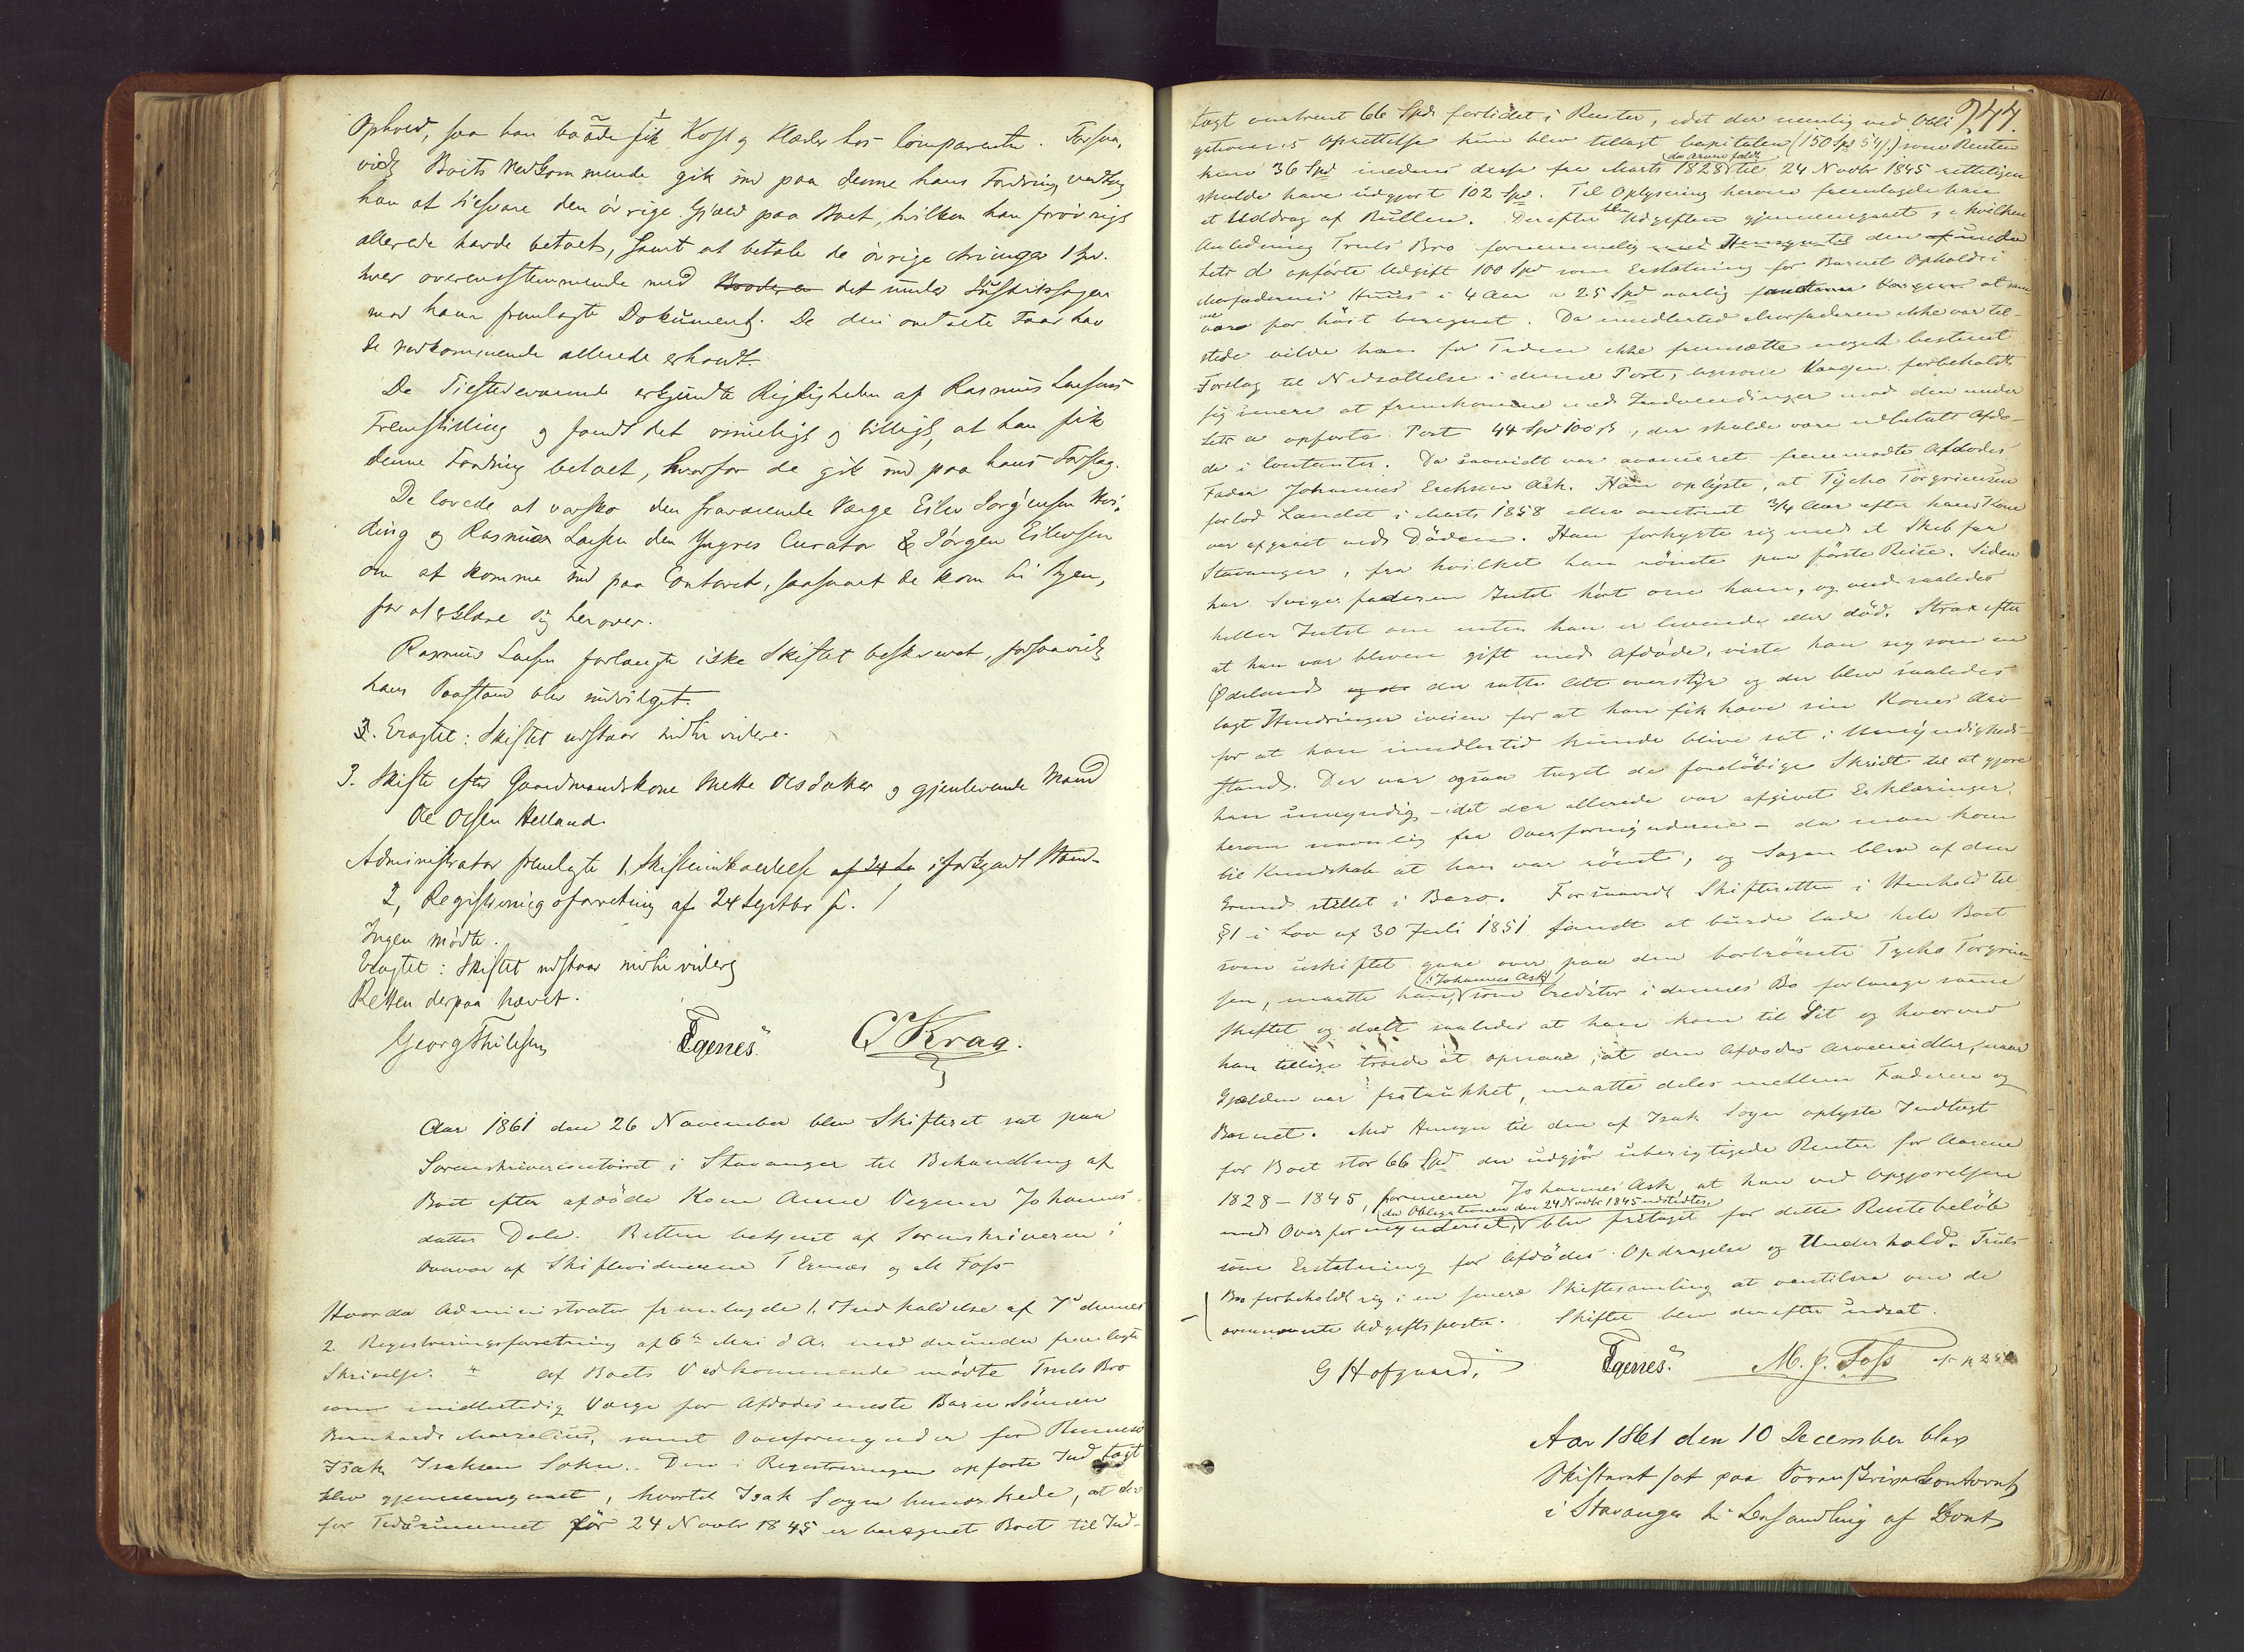 Ophold, saa han baade fik Kost og Klæder hos Comparenten. Forsaa-
vidt Boets Vedkommende gik ind paa denne hans Fordring vedtog
han at tilsvare den övrige Gjæld paa Boet, hvilken han forövrigt
allerede havde betalt, samt at betale de övrige Arvinger 1 Spd.
hver overensstemmende med det under Justitssagen
mod ham fremlagte Dokument. De deri omtalte Faar hav-
de vedkommende allerede erholdt.
De Tilstedeværende erkjendte Rigtigheden af Rasmus Larsens
Fremstilling og fandt det rimeligt og billigt, at han fik
denne Fordring betalt, hvorfor de gik ind paa hans Forslag.
De lovede at varsko den fraværende Værge Eilev Jörgensen
og Rasmus Larsen den Yngres Curator Jörgen Eilevsen
om at komme ind paa Contoret, saasnart de kom til Byen,
for at erklære sig herover.
Rasmus Larsen forlangte ikke Skiftet beskrevet, forsaavidt
hans Paastand blev indvilget.
Eragtet: Skiftet udstaar indtil videre.
3. Skifte efter Gaardmandskone Mette Olsdatter og gjenlevende Mand
Ole Olsen Helland.
Administrator fremlagte 1, Skifteindkaldelse af 24 i forkyndt Stand.
2, Registreringsforretning af 24 Septbr
Ingen mödte.
Eragtet: Skiftet udstaar indtil videre
Retten derpaa hævet.
Georg Thilesen Egenes. Krag.
Aar 1861 den 26 November blev Skifteret sat paa
Sorenskrivercontoiret i Stavanger til Behandling af
Boet efter afdöde Kone Anne Johannes-
datter Dale. Retten betjent af Sorenskriveren i
Overvær af Skiftevidnerne T Egenæs og M Foss
Hvorda Administrator fremlagde 1. Indkaldelse af 7de dennes
2. Registreringsforretning af 6te Mai d A. med derunder fremlagte
Skrivelse. Af Boets Vedkommende mödte Truls Bro
som midlertidig Værge for Afdödes eneste Barn Sönnen
Bernhard Marselius, samt Overformynder for Rennesö
Isak Isaksen Sokn. Den i Registreringen opförte Indtægt
blev gjennemgaaet, hvortil Isak Sogn bemærkede, at der
for Tidsrummet för 24 Novbr 1845 er beregnet Boet til Ind-
244.
tægt omtrent 66 Spd forlidet i Renter, idet der nemlig ved Obli-
gationens Oprettelse kun blev tillagt Capitalen (150 Spd ) som Renter
kun 36 Spd imedens disse fra Marts 1828 da Arven faldt til 24 Novbr 1845 rettelig
skulde have udgjort 102 Spd. Til Oplysning herom fremlagde han
et Uddrag af Rullen. Derefter blev Udgiften gjennemgaaet, i hvilken
Anledning Truls Bro fornemmelig med Hensyn til den under
Litr d opförte Udgift 100 Spd som Erstatning for Barnet Ophold i
Morfaderens Huus i 4 Aar a 25 Spd aarlig at som
være for höit beregnet. Da imidlertid Morfaderen ikke var til-
stede vilde han for Tiden ikke fremsætte noget bestemt
Forslag til Nedsættelse i denne Post, ligesom Værgen forbeholdt
sig senere at fremkomme med Indvendinger mod den under
Litr a opförte Post 44 Spd 100 ß, der skulde være udbetalt Afdö-
de i Contanter. Da saavidt var avanceret fremmödte Afdödes
Fader Johannes Eriksen Ask. Han oplyste, at Tycho Torgrimsen
forlod Landet i Marts 1858 eller omtrent 3/4 Aar efter hans Kone
var afgaaet ved Döden. Han forhyrte sig med et Skib fra
Stavanger, fra hvilket han römte paa förste Reise. Siden
har Svigerfaderen Intet hört om ham, og veed saaledes
heller Intet om enten han er levende eller död. Strax efter
at han var bleven gift med Afdöde, viste han sig som en
Ödeland der satte Alt overstyr og der blev saaledes
lagt Hindringer iveien for at han fik have sin Kones Arv
for at han imidlertid kunde blive sat i Umyndigheds-
stand. Der var ogsaa taget de foreløbige Skridt til at gjøre
ham umyndig - idet der allerede var afgivet Erklæringer
herom navnlig fra Overformynderne - da man kom
til Kundskab at han var römt, og Sagen blev af den
Grund stillet i Bero. Forsaavidt Skifteretten i Henhold til
§1 i Lov af 30 Juli 1851 fandt at burde lade hele Boet
som uskiftet gaae over paa den bortrömte Tycho Torgrim-
sen, maatte han, (Johannes Ask) som Creditor i dennes Bo forlange samme
skiftet og deelt saaledes at han kom til Sit og hvorved
han tillige troede at opnaae, at den Afdödes Arvemidler, naar
Gjælden var fratrukket, maatte deles mellem Faderen og
Barnet. Med Hensyn til den af Isak Sogn oplyste Indtægt
for Boet stor 66 Spd der udgjör uberigtigede Renter for Aarene
1828 - 1845, formener Johannes Ask, at han ved Opgjörelsen
med Overformynderiet, da Obligationen den 24 Novbr 1845 udstedtes, blev fritaget for dette Rentebelöb
som Erstatning for Afdödes Opdragelse og Underhold. Truls
Bro forbeholdt sig i en senere Skiftesamling at ventilere om de
ovennævnte Udgiftsposter. Skiftet blev derefter udsat.
G Hofgaard, Egenes. M. J. Foss
Aar 1861 den 10 December blev
Skifteret sat paa Sorenskrivercontoret
i Stavanger til Behandling af Boet